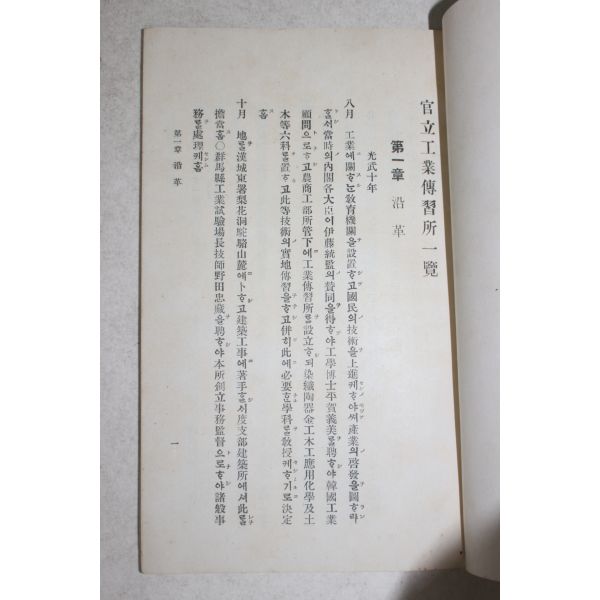 官立工業傳習所一覽
第一章 沿革
光武十年
八月 工業에關ᄒᆞᄂᆞᆫ敎育機關을設置ᄒᆞ고國民의技術을上進케ᄒᆞ야써產業의啓發을圖ᄒᆞ랴
ᄒᆞᆯᄉᆡ當時의內閣各大臣이伊藤統監의贊同을得ᄒᆞ야工學博士平賀義美를聘ᄒᆞ야韓國工業
顧問으로ᄒᆞ고農商工部所管下에工業傳習所를設立ᄒᆞ되染織陶器金工木工應用化學及土
木等六科를置ᄒᆞ고此等技術의實地傳習을ᄒᆞ고併히此에必要ᄒᆞᆫ學科를敎授케ᄒᆞ기로決定
홈
十月 地를漢城東署梨花洞駝駱山麓에卜ᄒᆞ고建築工事에著手ᄒᆞᆯᄉᆡ度支部建築所에셔此를
擔當홈○群馬縣工業試驗場長技師野田忠藏을聘ᄒᆞ야本所創立事務監督으로ᄒᆞ야諸般事
務를處理케홈
第一章 沿革
一